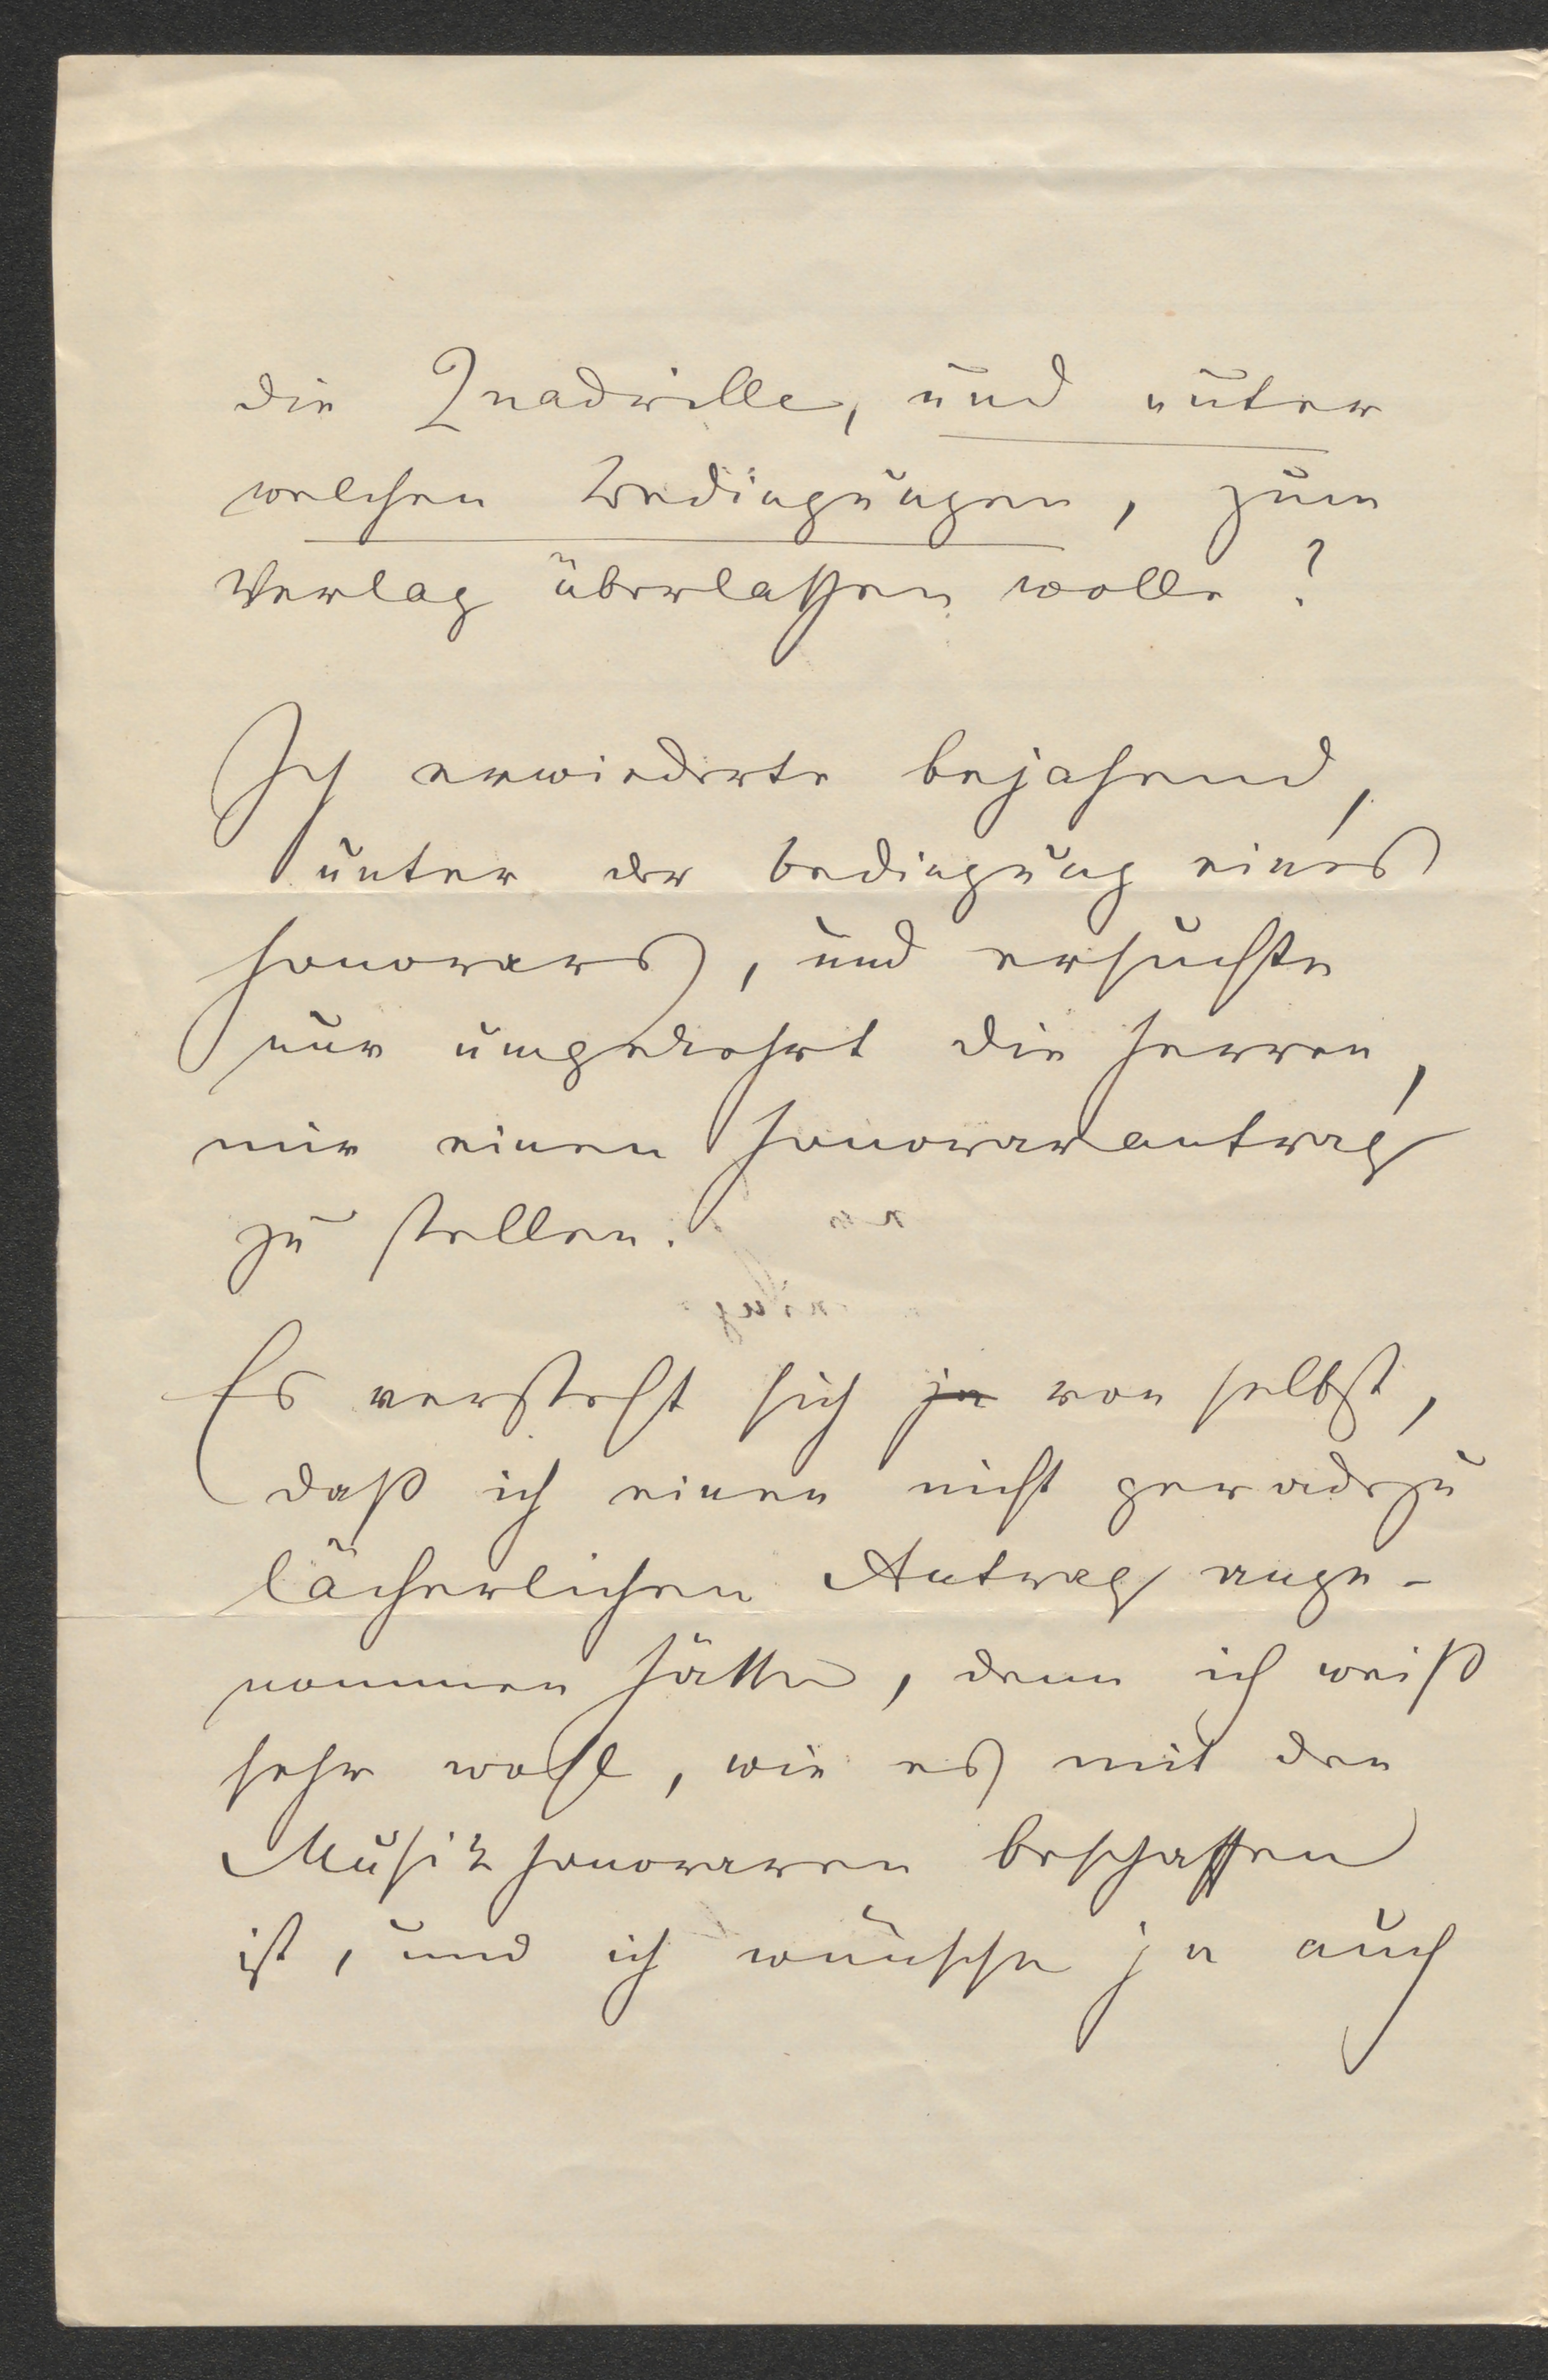 die Quadrille, und unter
welchen Bedingungen, zum
Verlag überlassen wolle?
Ich erwiederte bejahend,
unter der Bedingung eines
Honorars, und ersuchte
nur umgekehrt die Herren,
mir einen Honorarantrag
zu stellen.
Es versteht sich ja von selbst,
daß ich einen nicht geradezu
lächerlichen Antrag ange-
nommen hätte, denn ich weiß
sehr wohl, wie es mit den
Musikhonoraren beschaffen
ist, und ich wünsche ja auch